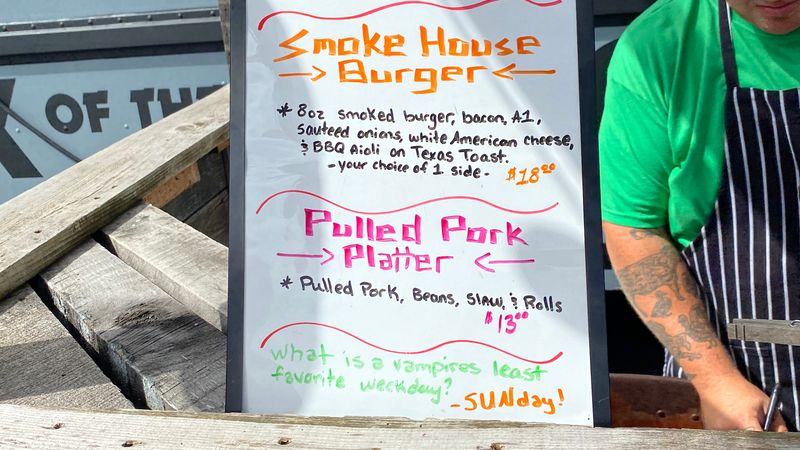 OF THE
Smoke House
Burger
* 8oz smoked burger, bacon, A1,
sauteed onions, white American cheese,
& BBQ Aioli on Texas Toast.
- your choice of 1 side -
$18.00
Pulled Pork
Platter
* Pulled Pork, Beans, Slaw, & Rolls
$13.00
What is a vampires least
favorite weekday?
- SUNday!